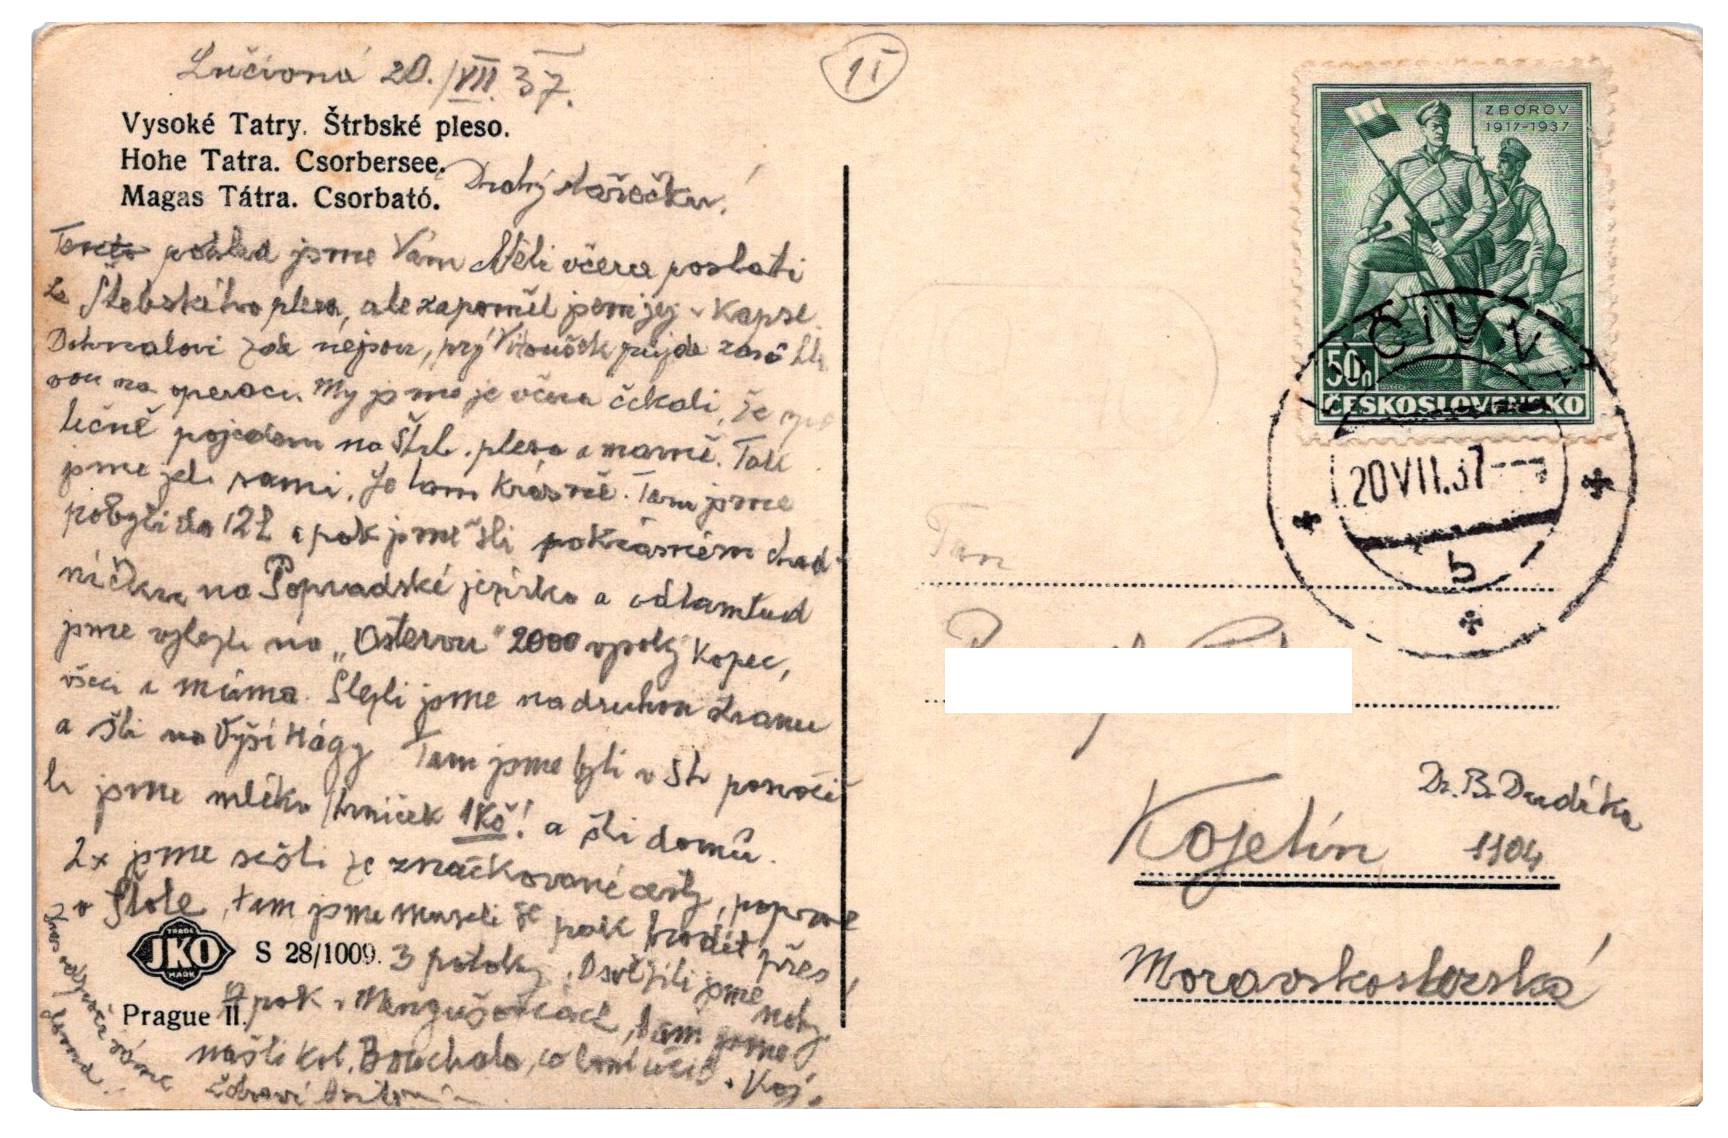 Lučivná 20./VII. 37.
11
Vysoké Tatry. Štrbské pleso.
Hohe Tatra. Csorbersee.
Magas Tátra. Csorbató.
Drahý stařečku!
Tento pohled jsme Vám měli včera poslati
ze Štrbského plesa, ale zapoměl jsem jej v kapse.
Dohnalovi zde nejsou, prý Vítoušek půjde zase
na operaci. My jsme je včera čekali, že spo
lečně pojedem na Štrb. pleso a marně. Tak
jsme jeli sami. Je tam krásně. Tam jsme
pobyli do 12h a pak jsme šli po krásném chod-
níčku na Popradské jezírko a odtamtud
jsme vylezli na „Ostervu" 2000 vysoký kopec,
všeci i máma. Slezli jsme na druhou stranu
a šli na Vyší Hágy Tam jsme byli v 5h posvači
li jsme mléko /hrníček 1Kč! a šli domů.
2x jsme sešli ze značkované cesty, poprvé
v Štole, tam jsme museli se pak brodit přes
3 potoky. Osvěžili jsme nohy.
A pak v Mengušovcach, tam jsme
našli kol. Bouchala, co loni učil v Koj.
Zdraví Antonín
doma.
JKO
TRADE
MARK
S 28/1009.
Prague II.
ZBOROV
1917-1937
50h
ČESKOSLOVENSKO
LUČIVNÁ
20 VII.37
b
Pan
Kojetín
Dr. B. Dudíka
1104
Moravskoslezská